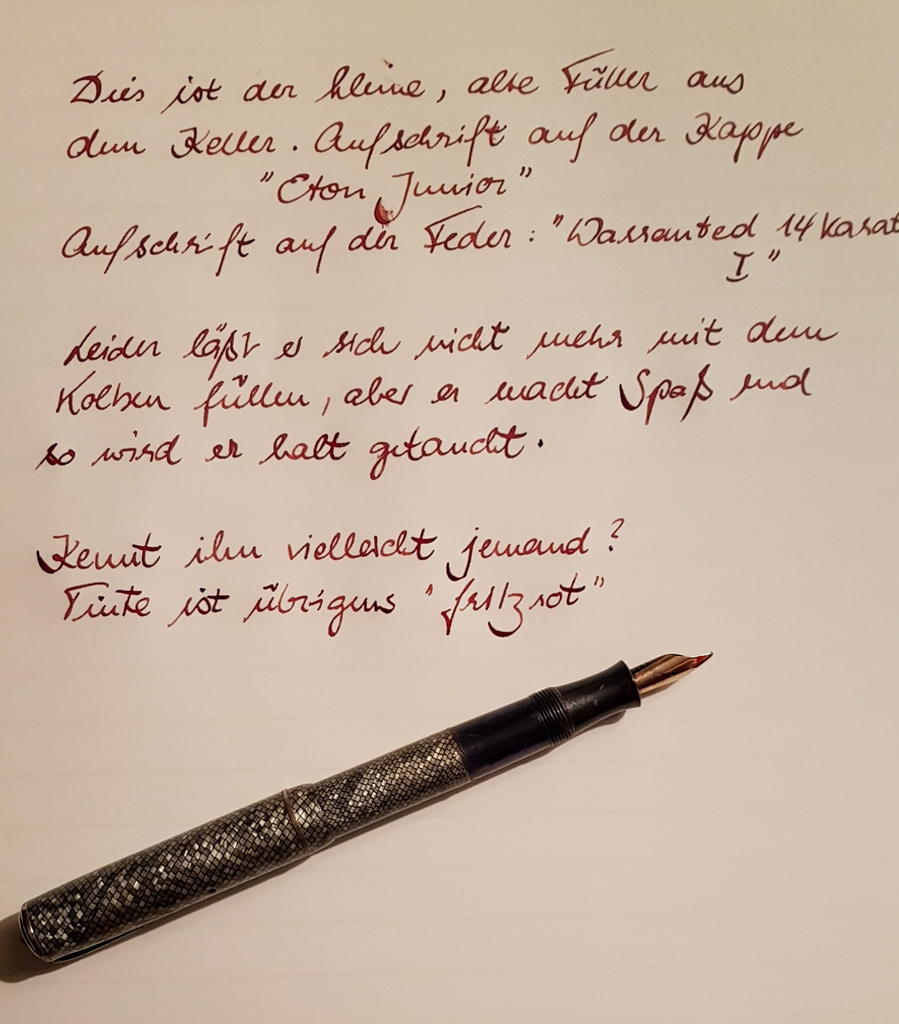 Dies ist der kleine, alte Füller aus
dem Keller. Aufschrift auf der Kappe
"Eton Junior"
Aufschrift auf der Feder: "Warranted 14 Karat
I"
Leider läßt er sich nicht mehr mit dem
Kolben füllen, aber er macht Spaß und
so wird er halt getaucht.
Kennt ihn vielleicht jemand?
Tinte ist übrigens "filzrot"